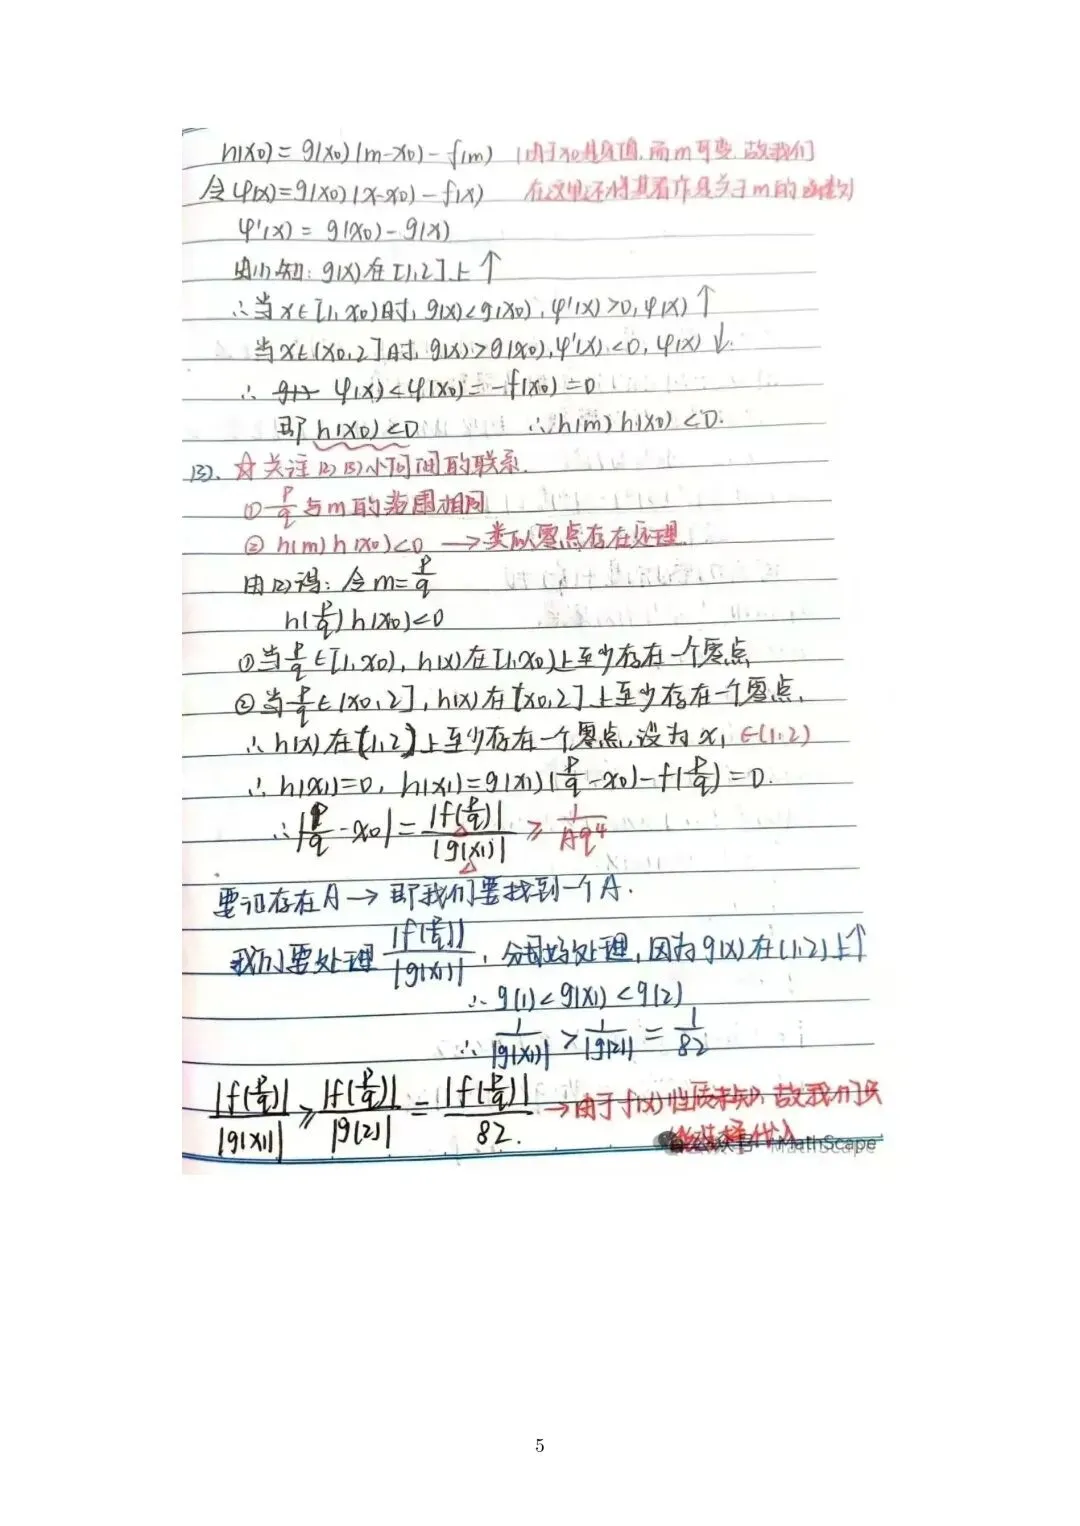 h(x₀) = g(x₀)(m-x₀) - f(m) (由于x₀是定值,而m可变,故我们
令φ(x)=g(x₀)(x-x₀)-f(x) 在这里还将其看作是关于m的函数)
φ'(x) = g(x₀) - g(x)
由(1)知: g(x)在[1,2]上↑
∴当x∈[1,x₀)时, g(x)<g(x₀), φ'(x)>0, φ(x)↑
当x∈(x₀,2]时, g(x)>g(x₀), φ'(x)<0, φ(x)↓.
∴ φ(x)<φ(x₀)=-f(x₀)=0
即h(x₀)<0 ∴h(m)h(x₀)<0.
(3). ☆关注(2)(3)小问间的联系.
① p/q 与m的范围相同
② h(m)h(x₀)<0 → 类似零点存在定理
由(2)得: 令m=p/q
h(p/q)h(x₀)<0
①当p/q∈[1,x₀), h(x)在[1,x₀)上至少存在一个零点
②当p/q∈(x₀,2], h(x)在[x₀,2]上至少存在一个零点.
∴h(x)在(1,2)上至少存在一个零点,设为x₁∈(1,2)
∴h(x₁)=0, h(x₁)=g(x₁)(p/q-x₀)-f(p/q)=0.
∴|p/q-x₀|=|f(p/q)|/|g(x₁)| ≥ 1/Aq⁴
要证存在A→即我们要找到一个A.
我们要处理|f(p/q)|/|g(x₁)|, 分母好处理,因为g(x)在(1,2)上↑
∴g(1)<g(x₁)<g(2)
∴1/|g(x₁)|>1/|g(2)|=1/82
|f(p/q)|/|g(x₁)|≥|f(p/q)|/|g(2)|=|f(p/q)|/82. →由于f(x)性质未知,故我们只
MathScape
5